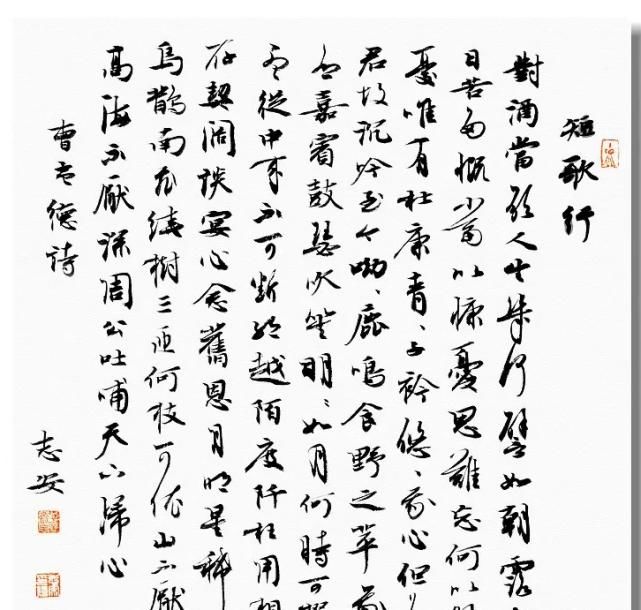 短歌行
對酒當歌人生幾何譬如朝露
日苦多慨當以慷憂思難忘何以
憂唯有杜康青、子衿悠、我心但
君故沉吟至今呦、鹿鳴食野之苹我
有嘉賓鼓瑟吹笙明、如月何時可
憂從中來不可斷絕越陌度阡枉用相
存契闊談宴心念舊恩月明星稀
烏鵲南飛繞樹三匝何枝可依山不厭
高海不厭深周公吐哺天下歸心
曹孟德詩
志安